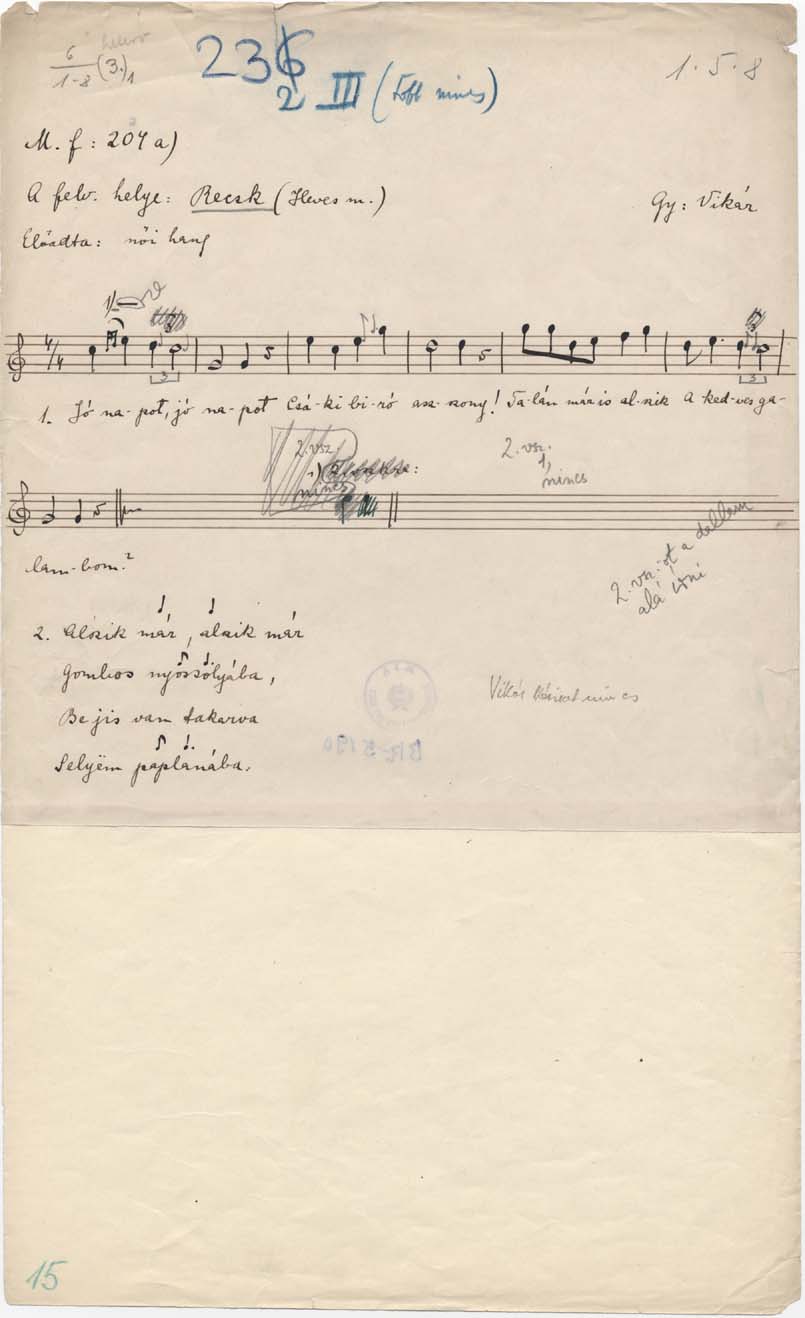 6
1-8 (3.)1
236
2 III (több nincs)
1·5·8
M. f: 204 a)
A felv. helye: Recsk (Heves m.)
Gy: Vikár
Előadta: női hang
1)
3
3
1. Jó na-pot, jó na-pot Csá-ki bi-ró asz-szony! Ta-lán már is al-szik A ked-ves ga-
2. vsz.
1)
nincs
2. vsz.
1,
nincs
lam-bom?
2. vsz.-ot a dallam
alá írni
2. Alszik már, alszik már
Gombos nyoszolyába,
Be jis van takarva
Selyëm paplanába.
Vikár nincs
15